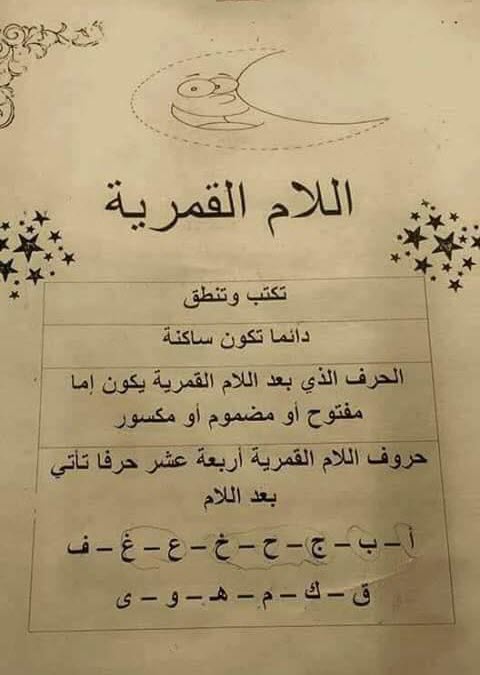 اللام القمرية
تكتب وتنطق
دائما تكون ساكنة
الحرف الذي بعد اللام القمرية يكون إما
مفتوح أو مضموم أو مكسور
حروف اللام القمرية أربعة عشر حرفا تأتي
بعد اللام
أ – ب – ج – ح – خ – ع – غ – ف
ق – ك – م – هـ – و – ى